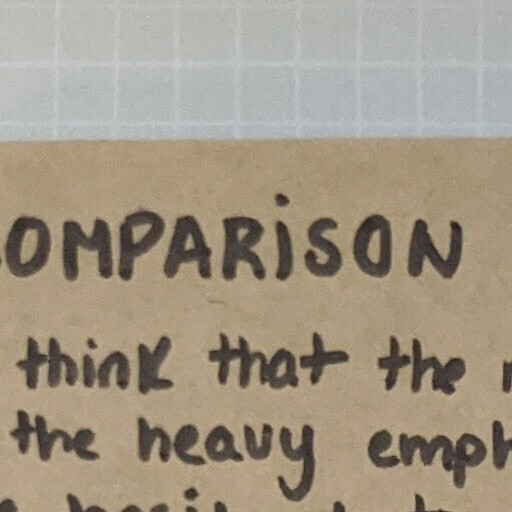 COMPARiSON
think that the
the heavy emph